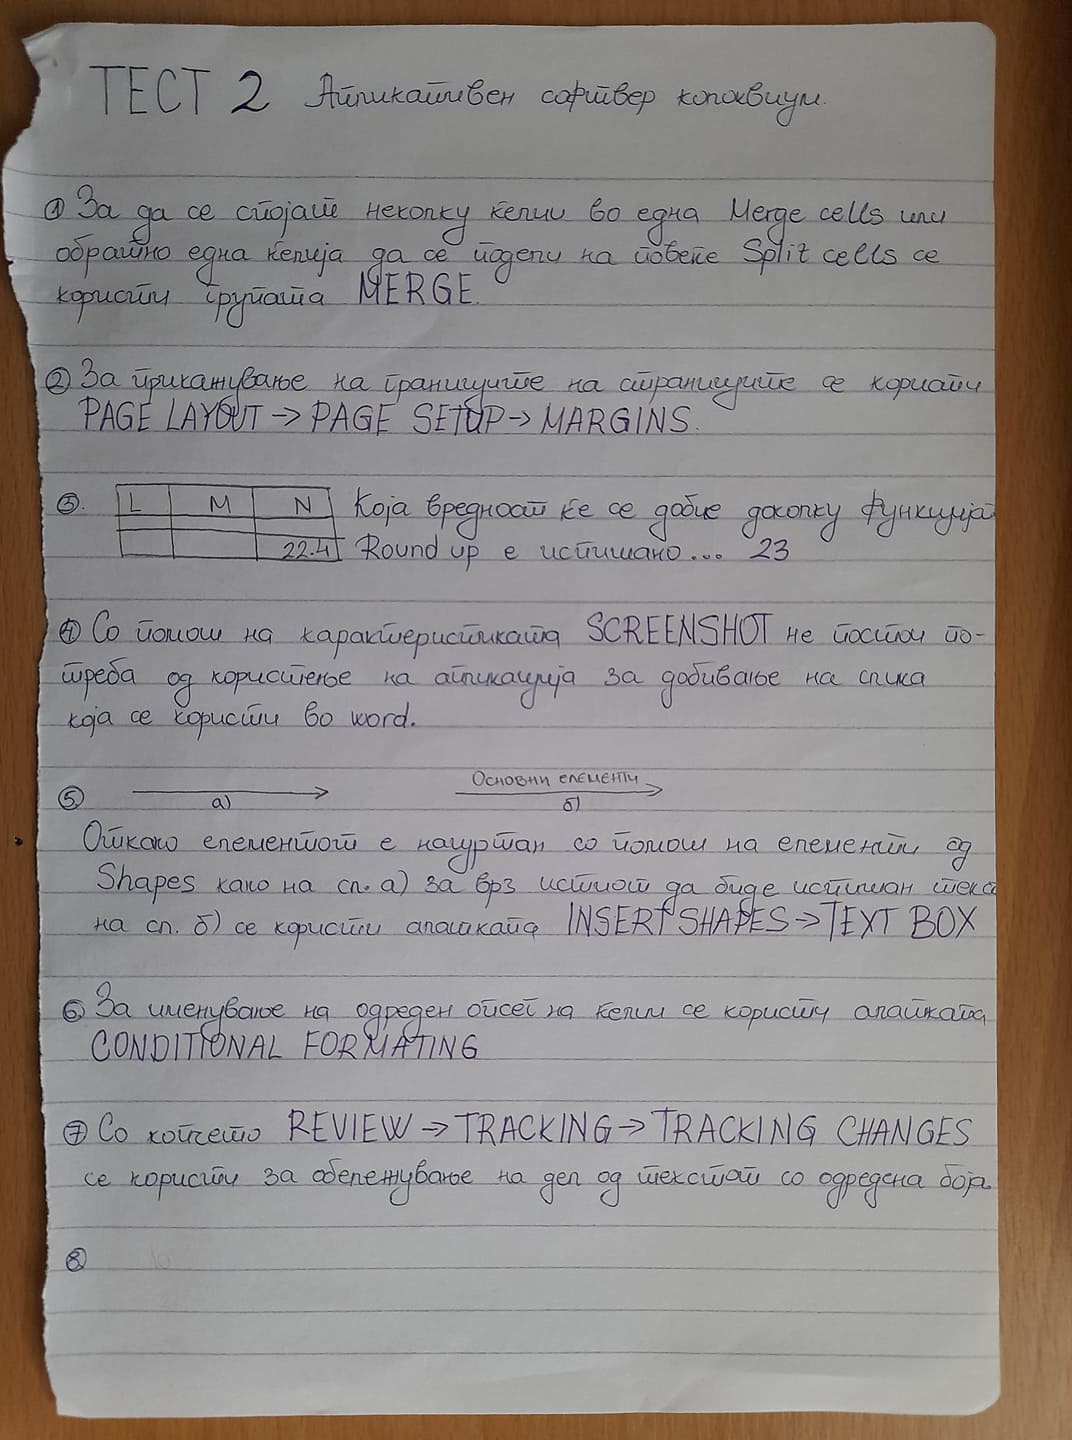 ТЕСТ 2 Апликативен софтвер колоквиум.
① За да се спојат неколку ќелии во една Merge cells или
обратно една ќелија да се подели на повеќе Split cells се
користи групата MERGE.
② За прикажување на границите на страниците се користи
PAGE LAYOUT → PAGE SETUP → MARGINS.
③. L M N Која вредност ќе се добие доколку функција
22.4 Round up е испишано... 23
④ Со помош на карактеристиката SCREENSHOT не постои по-
треба од користење на апликација за добивање на слика
која се користи во word.
⑤ а) Основни елементи б)
Откако елементот е нацртан со помош на елементи од
Shapes како на сл. а) за врз истиот да биде испишан текс
на сл. б) се користи алатката INSERT SHAPES → TEXT BOX
⑥ За именување на одреден опсег на ќелии се користи алатката
CONDITIONAL FORMATING
⑦ Со копчето REVIEW → TRACKING → TRACKING CHANGES
се користи за обележување на дел од текстот со одредена боја.
⑧